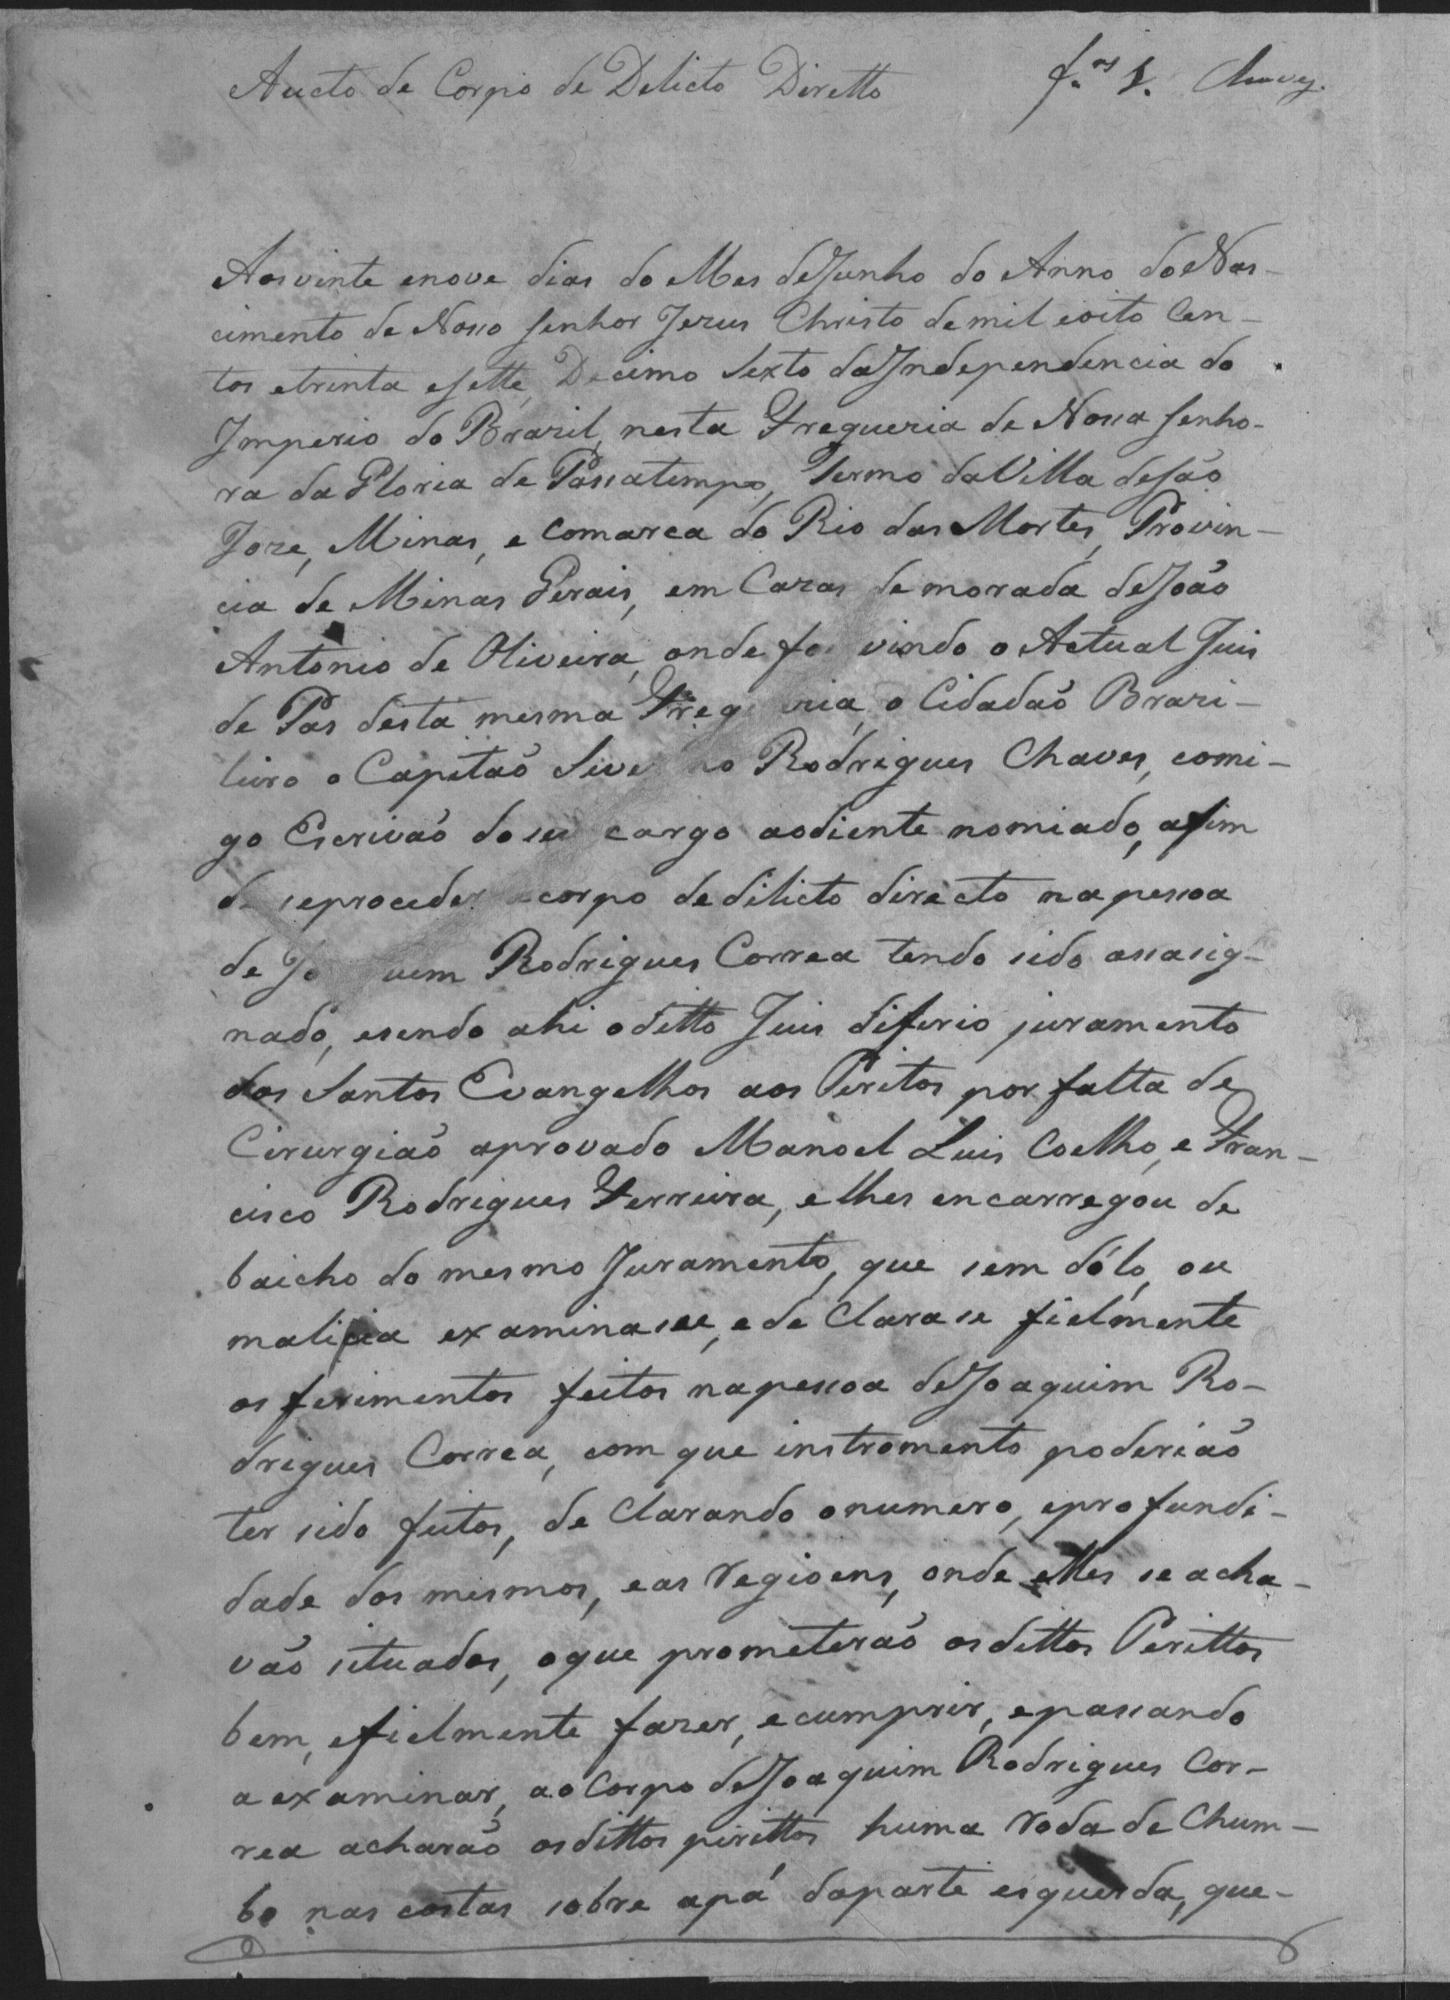 Aucto de Corpo de Delicto Diretto
f.as 1. Chaves
Aos vinte enove dias do Mes deJunho do Anno do Nas-
cimento de Nosso Senhor Jezus Christo de mil eoito Cen-
tos etrinta esette, Decimo Sexto daIndependencia do
Imperio do Brazil, nesta Fregueria de Nossa Senho-
ra da Gloria de Passatempo, Termo daVilla desão
Joze, Minas, e Comarca do Rio das Mortes, Provin-
cia de Minas Gerais, em Cazas demorada deJoão
Antonio de Oliveira, onde fo vindo o Actual Juis
de Pas desta mesma Freg ria, o Cidadão Brazi-
leiro o Capitão Seve no Rodrigues Chaves, comi-
go Escrivão do seu cargo aodiente nomiado, afim
de seproceder acorpo dedilicto directo napessoa
de Jo uim Rodrigues Correa tendo sido assasig-
nado, esendo ahi oditto Juis diferio juramento
dos Santos Evangelhos aos Peritos por falta de
Cirurgião aprovado Manoel Luis Coelho, e Fran-
cisco Rodrigues Ferreira, elhes encarregou de
baicho do mesmo Juramento, que sem dólo, ou
malicia examinasse, ede Clarase fielmente
os ferimentos feitos napessoa deJoaquim Ro-
drigues Correa, com que instromento poderião
ter sido feitos, de Clarando onumero, eprofundi-
dade dos mesmos, eas regioens, onde elles seacha-
vão situados, oque prometerão osdittos Perittos
bem, efielmente fazer, ecumprir, epassando
aexaminar, ao Corpo deJoaquim Rodrigues Cor-
rea acharão osdittos perittos huma roda de Chum-
bo nas costas sobre apá daparte esquerda, que-